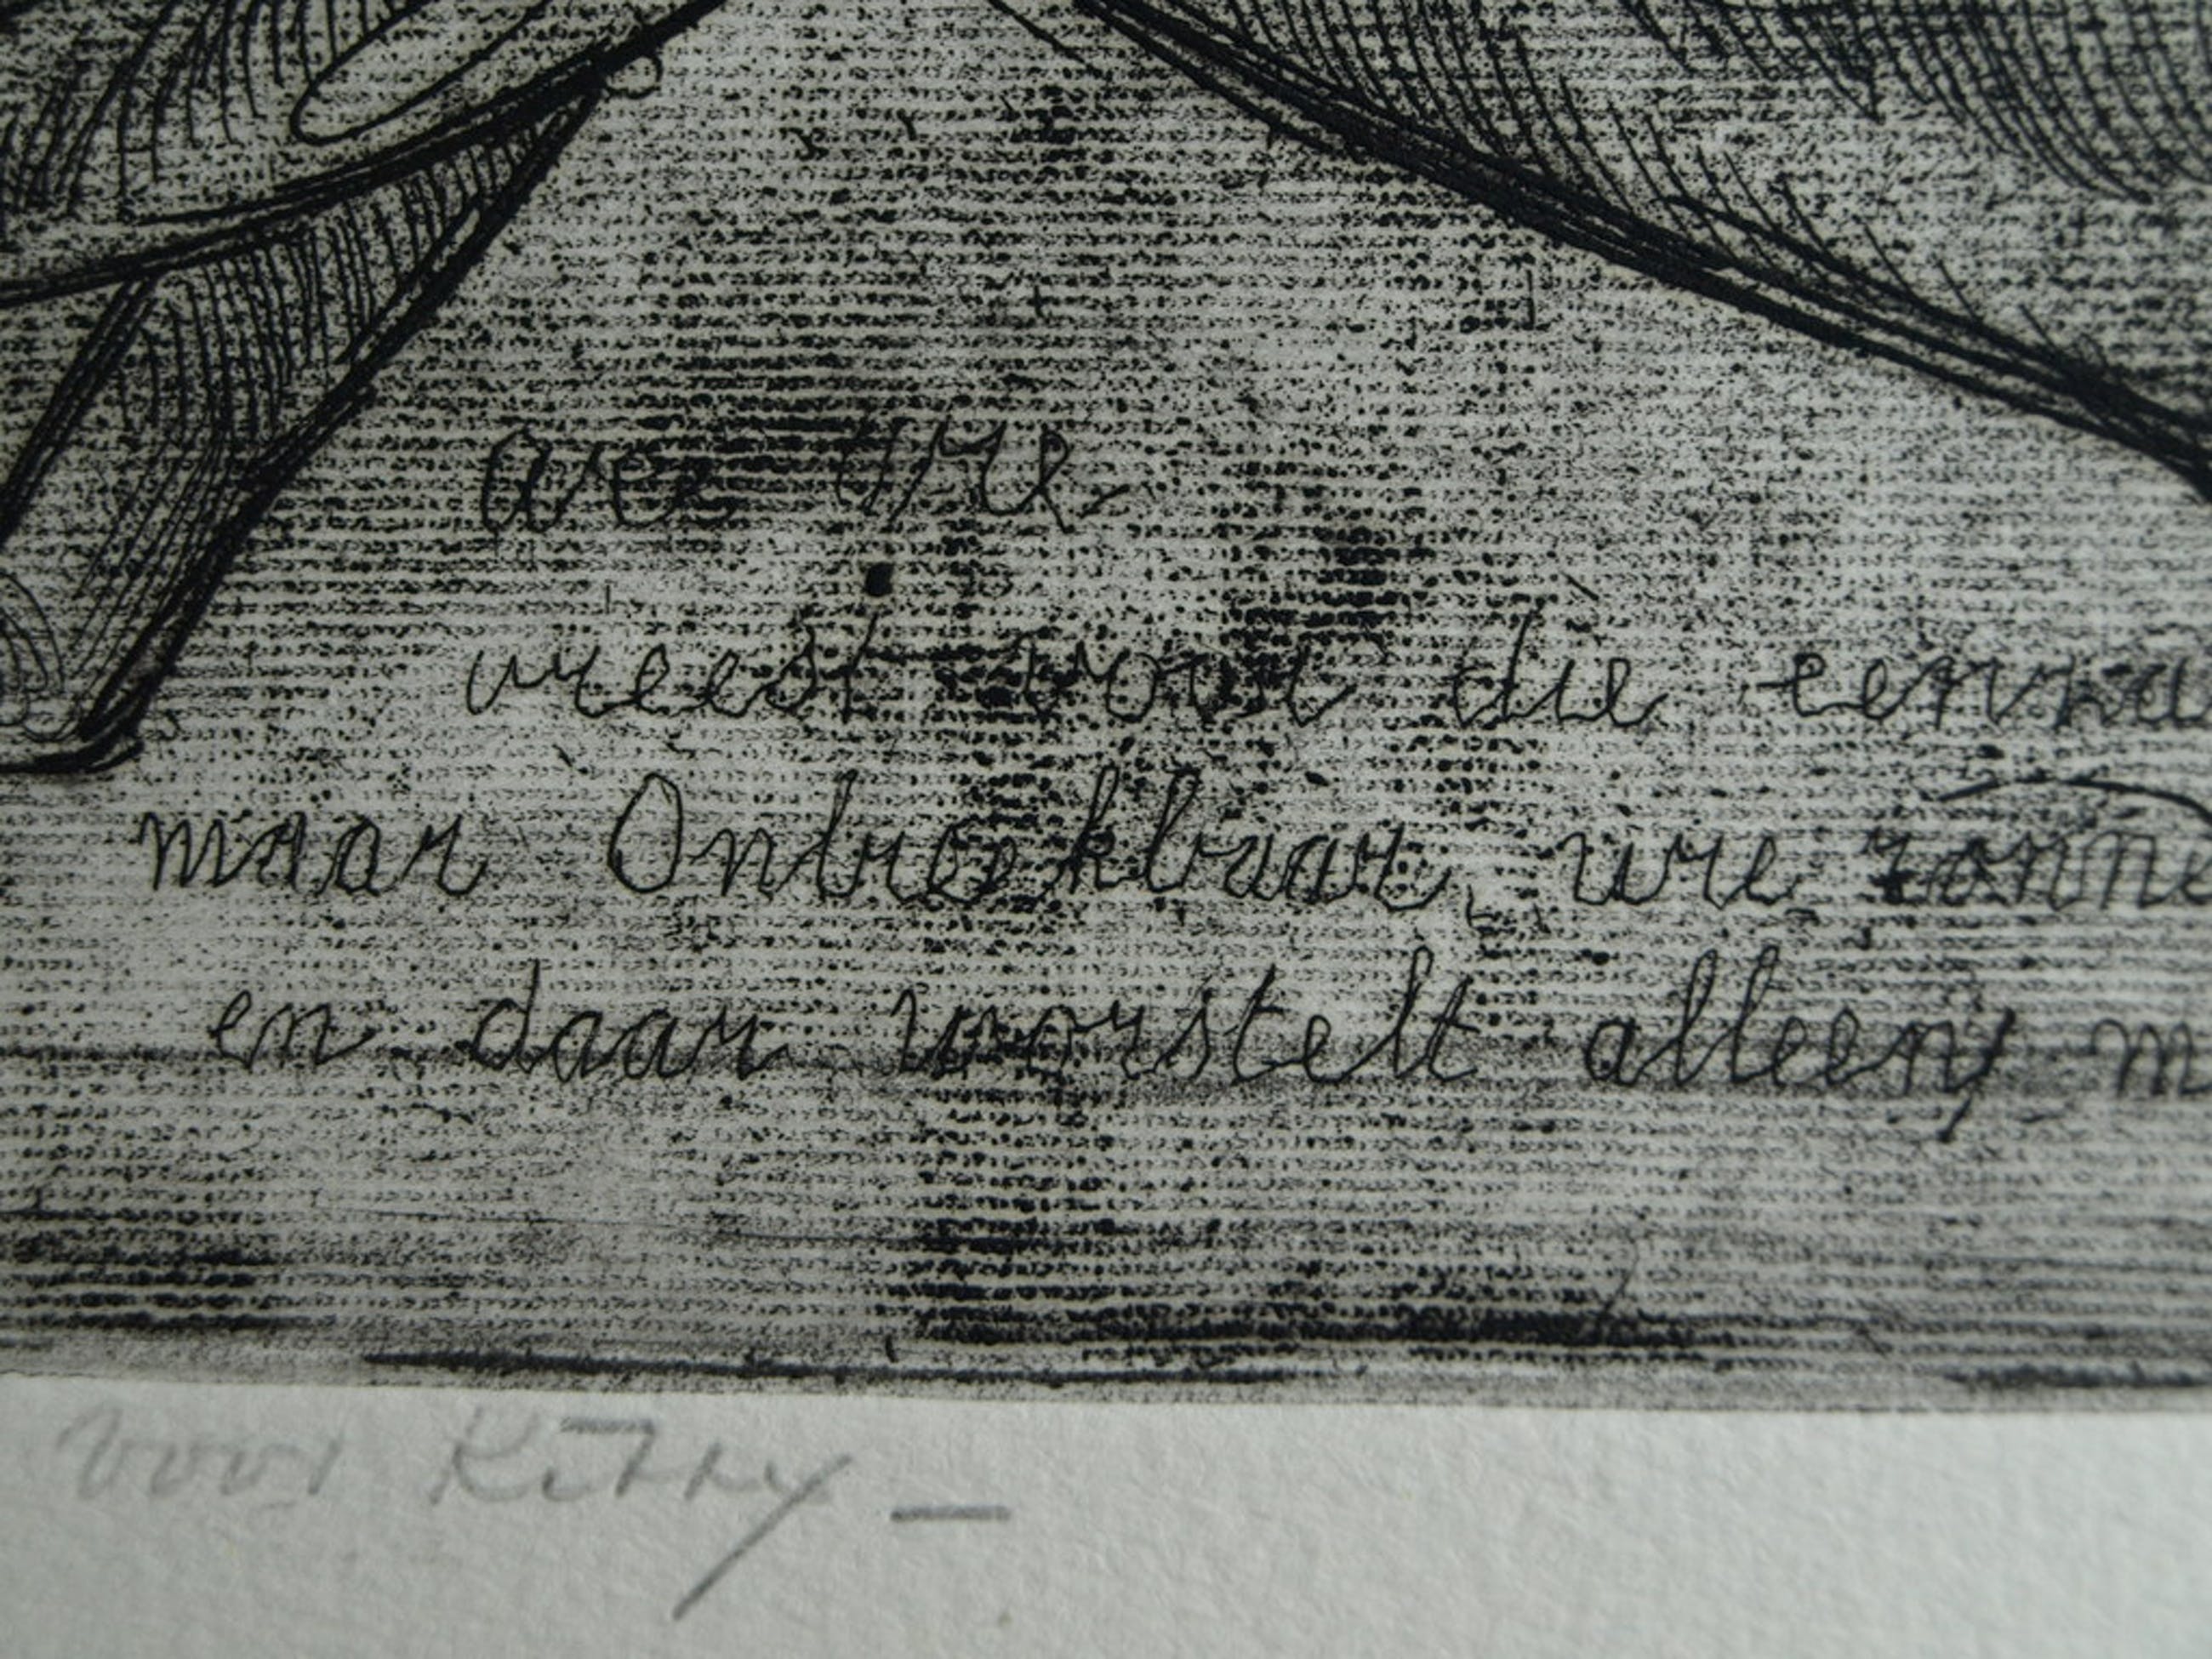 vreest voor die eenza
maar Ontreekbaar, wie zonne
en daar worstelt alleen, m
voor Kitty –